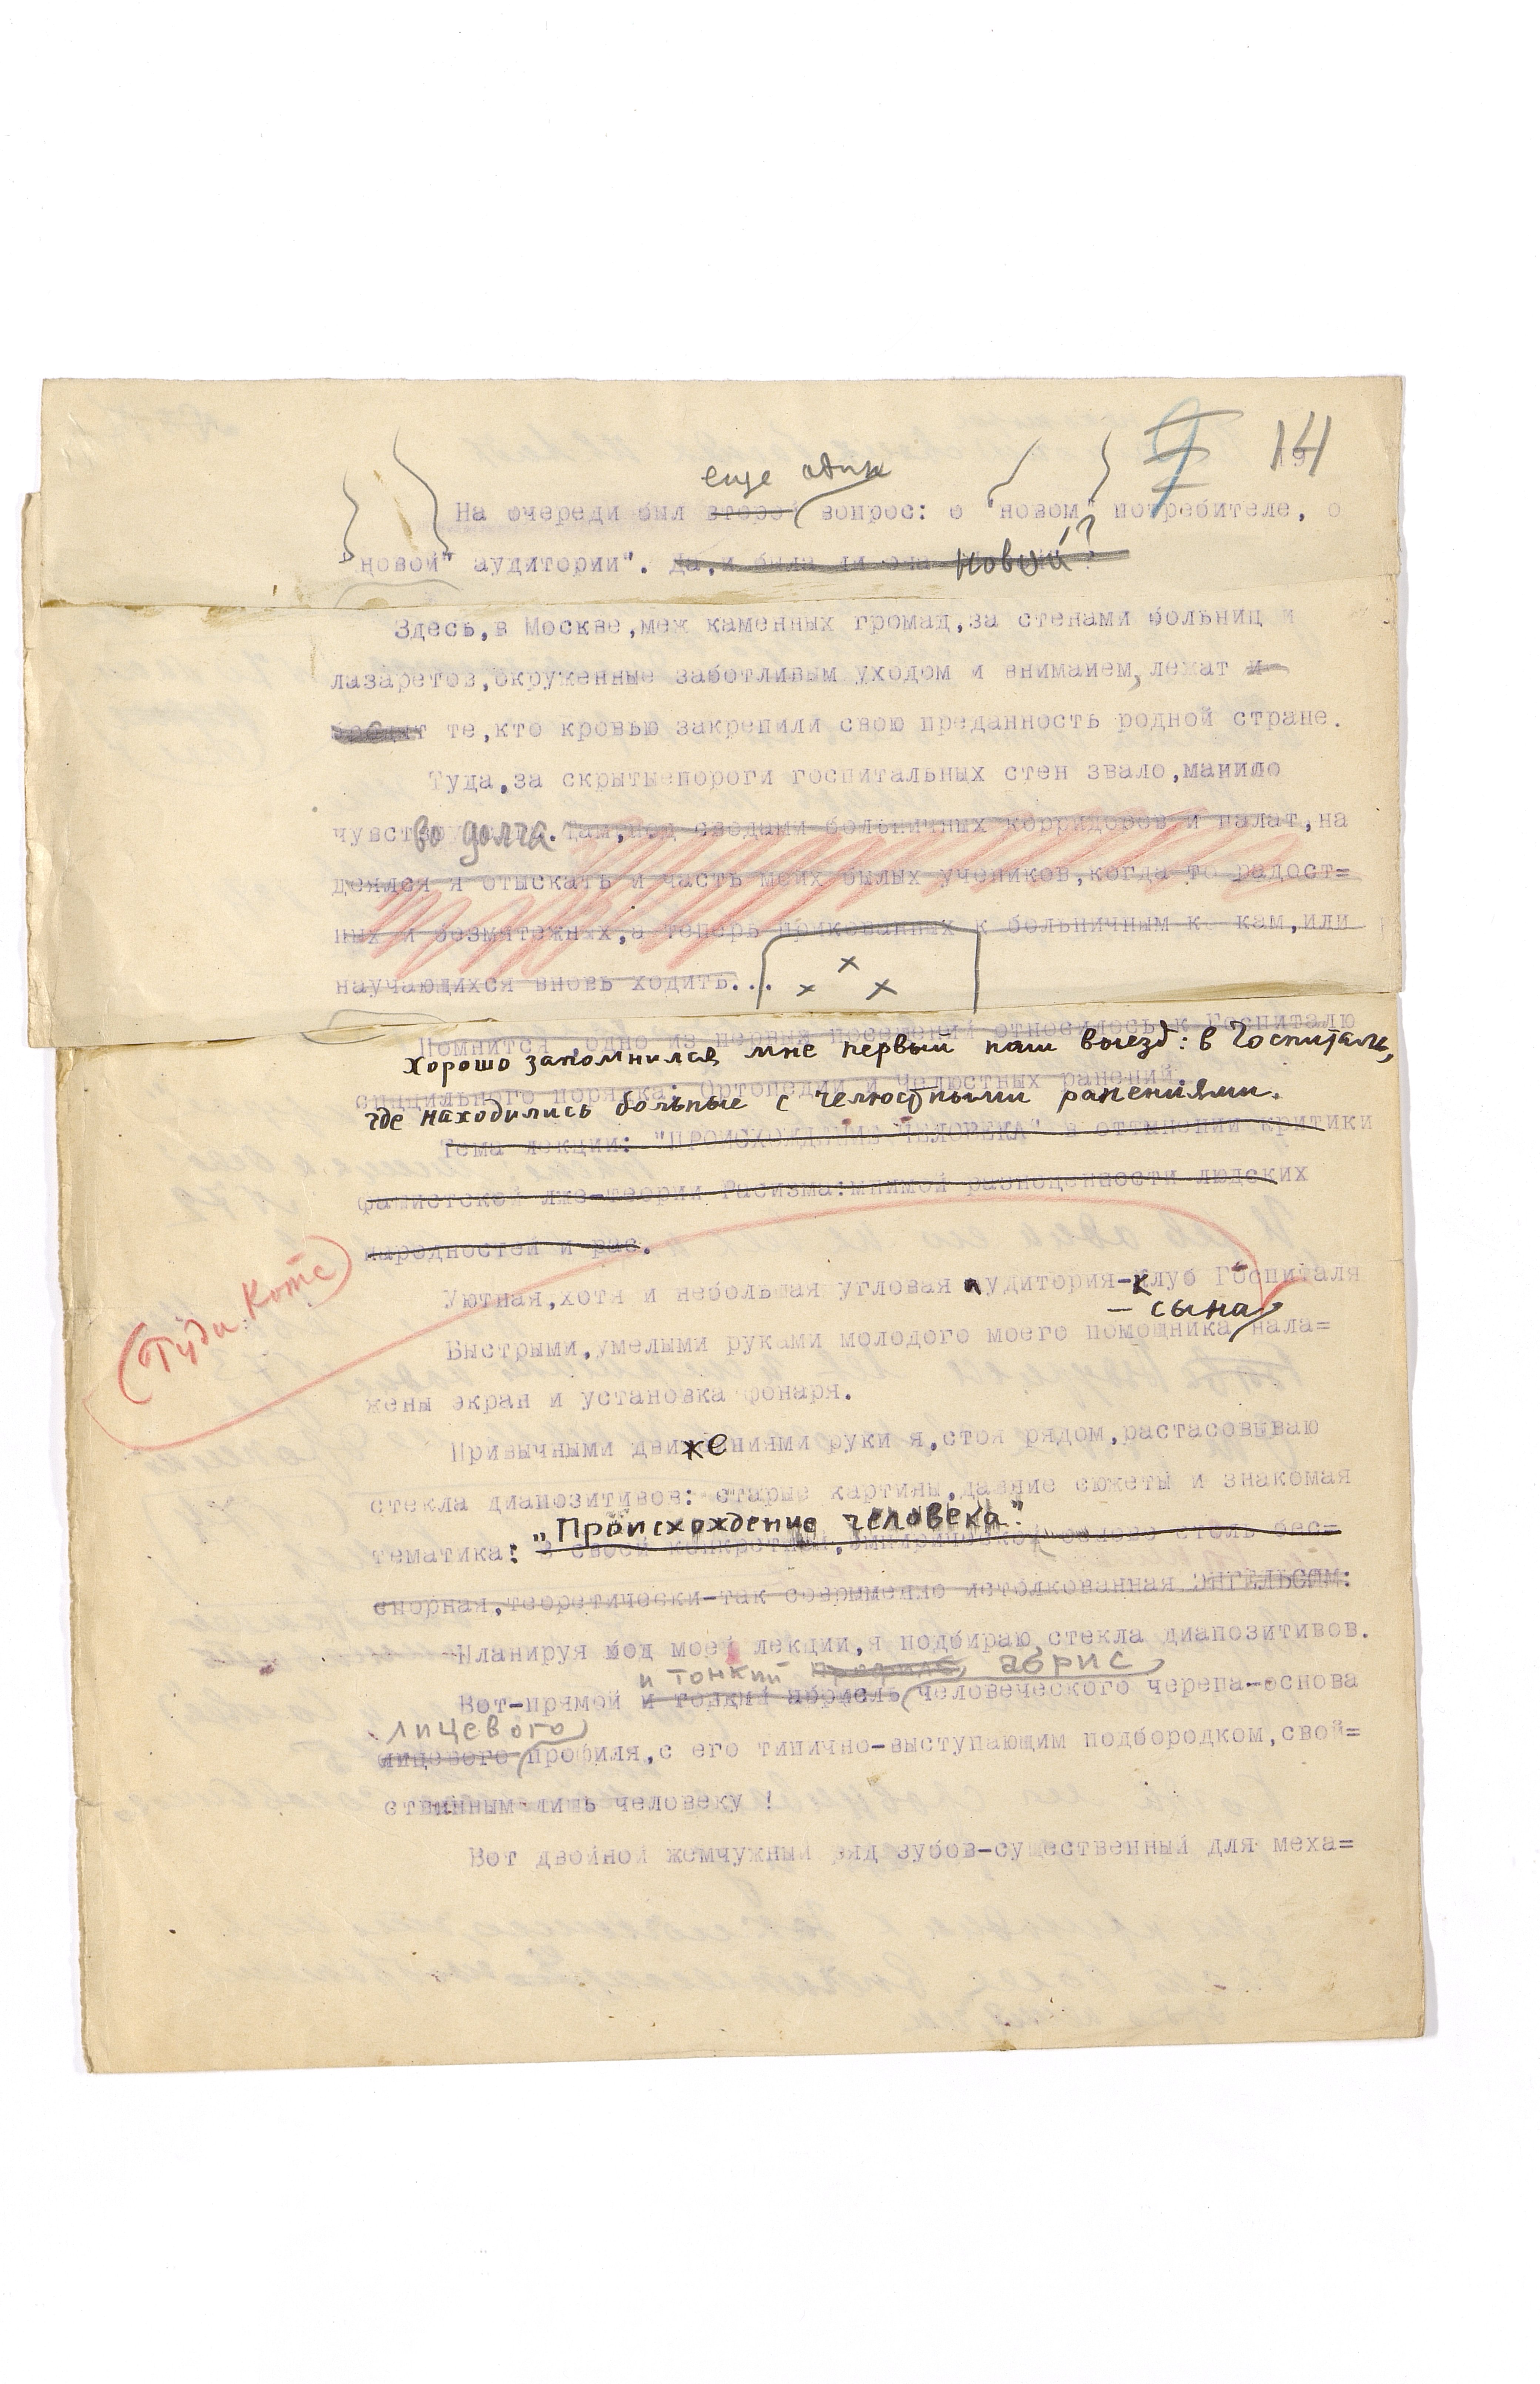 14
еще один
На очереди был второй вопрос: о "новом" потребителе, о
"новой" аудитории". Да, и была ли она новой?
Здесь,в Москве,меж каменных громад,за стенами больниц и
лазаретов,окруженные заботливым уходом и вниманием, лежат и
бродят те,кто кровью закрепили свою преданность родной стране.
Туда,за скрытыепороги госпитальных стен звало,манило
чувство долга. Там,под сводами больничных корридоров и палат,на
деялся я отыскать и часть моих былых учеников,когда то радост=
ных и безмятежных,а теперь прикованных к больничным койкам,или
научающихся вновь ходить...
Помнится ,одно из первых посещений относилось к Госпиталю
Хорошо запомнился мне первый наш выезд: в Госпиталь,
специльного порядка: Ортопедии и Челюстных ранений.
где находились больные с челюстными ранениями.
Тема лекции: "ПРОИСХОЖДЕНИЕ ЧЕЛОВЕКА" в оттенении критики
фашистской лже-теории Расизма:мнимой разноценности людских
народностей и рас.
Туди Котс
Уютная,хотя и небольшая угловая аудитория-клуб Госпиталя
- сына
Быстрыми,умелыми руками молодого моего помощника нала=
жены экран и установка фонаря.
Привычными движениями руки я,стоя рядом,растасовываю
стекла диапозитивов: старые картины,давние сюжеты и знакомая
"Происхождение человека".
тематика: в своей конкретной,эмпирической основе столь бес=
спорная,теоретически-так соврыменно истолкованная ЭНГЕЛЬСОМ:
Планируя ход моей лекции,я подбираю стекла диапозитивов.
и тонкий профиль абрис
Вот-прямой и тонкий абрисль человеческого черепа-основа
лицевого
лицевого профиля,с его типично-выступающим подбородком,свой=
ственным-лишь человеку !
Вот двойной жемчужный ряд зубов-существенный для меха=